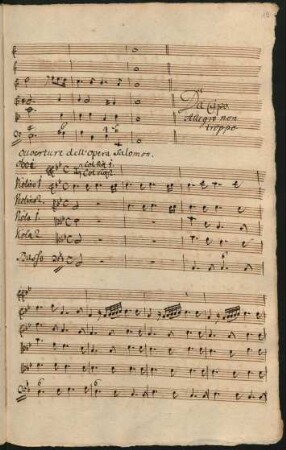 Da Capo.
Allegro non
troppo
Ouverture dell'opera Salomon.
Oboi
Violino 1
Violino 2
Viola 1.
Viola 2
Basso
6
6